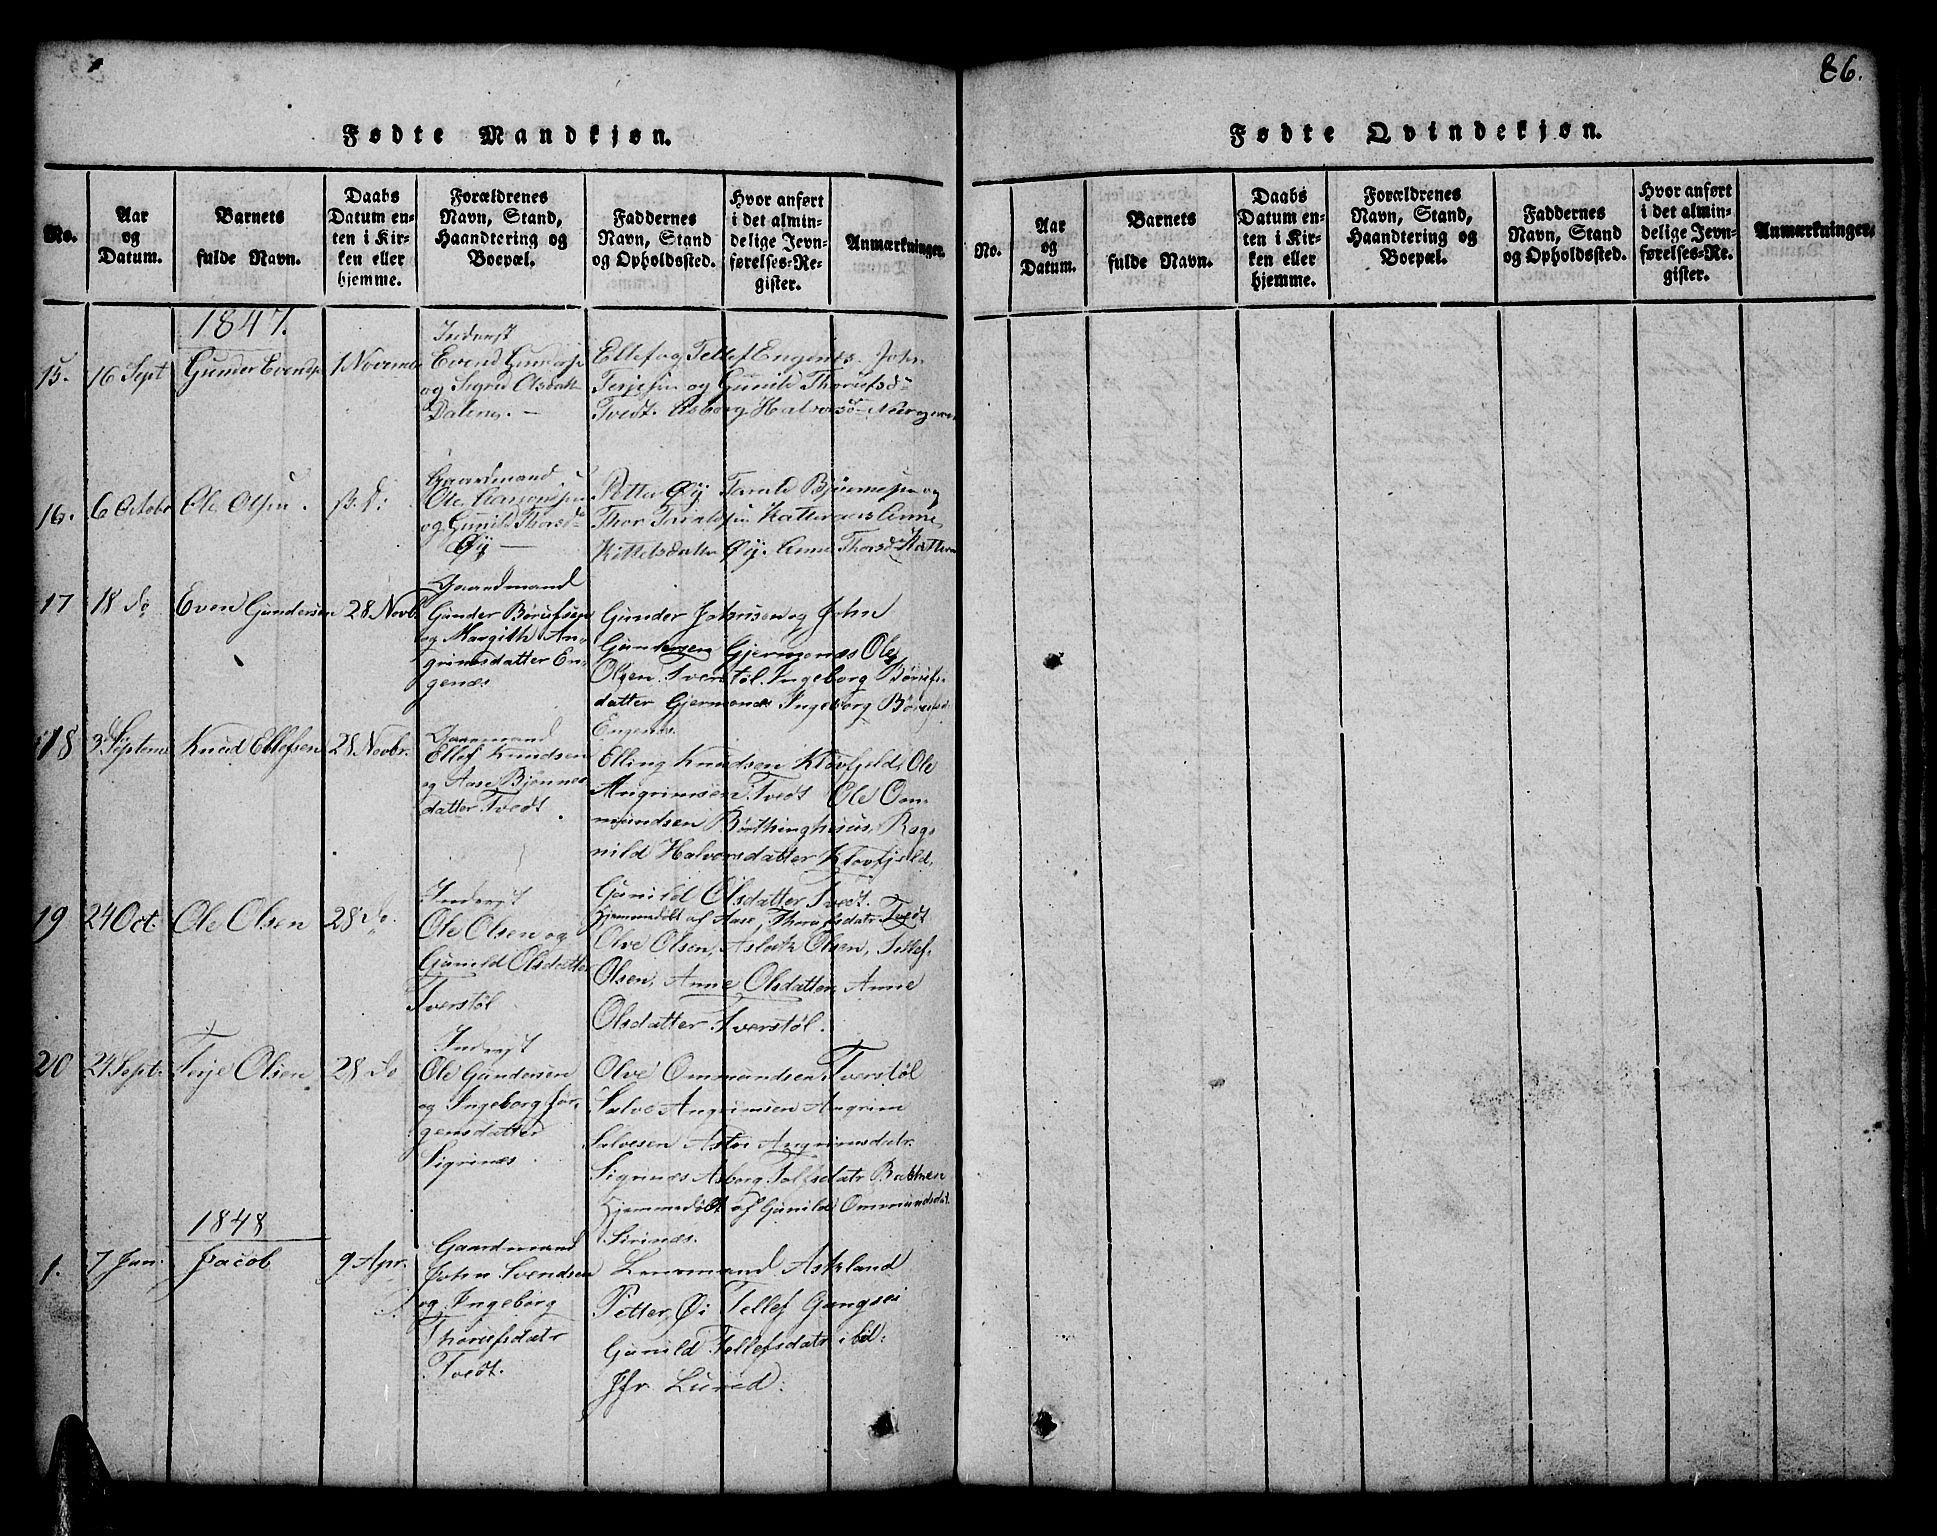 86.
Fødte Mandkjøn.
No.
Aar
og
Datum.
Barnets
fulde Navn.
Daabs
Datum en-
ten i Kir-
ken eller
hjemme.
Forældrenes
Navn, Stand,
Haandtering og
Boepæl.
Faddernes
Navn, Stand
og Opholdssted.
Hvor anført
i det almin-
delige Jevn-
førelses-Re-
gister.
Anmærkninger.
1847.
15.
16 Sept
Gunder Evensen
1 Novemb
Inderst
Evend Gunders
og Sigrid Olsdatter
Dalene. —
Ellef og Tellef Engenes. John
Terjesen og Gunild Thorufsd
Tvedt. Asborg Halvorsd
16.
6 October
Ole Olsen
Gaardmand
Ole
og Gunild Thorsd
Øij —
Petter Øij Tarald Bjørnesen og
Thor Taraldsen Katteraas Anne
Kittelsdatter Øij. Anne Thorsd
17
18 do
Even Gundersen
28 Novb.
Gaardmand
Gunder Børufsen
og Margith An-
grimsdatter En-
genæs
Gunder Johnsen og John
Gundersen Gjermonæs Ole
Olsen Tverstøl. Ingeborg Børufs-
datter Gjermonæs Ingeborg Børufsd
Engenæs.
18
3 Septemb
Knud Ellefsen
28 Novbr.
Gaarmand
Ellef Knudsen
og Aase Bjønnes
datter Tvedt.
Elling Knudsen Kløvfjeld, Ole
Angrimsen Tvedt Ole Om-
mundsen Bøthinghuus, Rag-
nild Halvorsdatter Kløvfjeld,
Gunild Olsdatter Tvedt.
Hjemmedøbt af Aase Thorsdatr Tvedt
19
24 Oct.
Ole Olsen
28 do.
Inderst
Ole Olsen og
Gunild Olsdatter
Tverstøl
Olve Olsen, Aslak Olsen, Tellef
Olsen, Anne Olsdatter, Anne
Olsdatter Tverstøl.
20
24 Sept.
Terje Olsen
28 do
Inderst
Ole Gundersen
og Ingeborg Jør-
gensdatter
Sigrinæs.
Olve Ommundsen Tverstøl
Salve Angrimsen Angrim
Salvesen Astri Angrimsdatr.
Sigrinæs Asborg Tolfsdatr
Hjemmedøbt af Gunild Ommundsdat.
Sirinæs.
1848
1.
7 Jan.
Jacob
9 Apr.
Gaardmand
John Svendsen
og Ingeborg
Thorufsdatr
Tvedt.
Lensmand Askland
Petter Øi Tellef Gangsei
Gunild Tellefsdatr ibid:
Jfr. Lund.
Fødte Qvindekjøn.
No.
Aar
og
Datum.
Barnets
fulde Navn.
Daabs
Datum en-
ten i Kir-
ken eller
hjemme.
Forældrenes
Navn, Stand,
Haandtering og
Boepæl.
Faddernes
Navn, Stand
og Opholdssted.
Hvor anført
i det almin-
delige Jevn-
førelses-Re-
gister.
Anmærkninger.